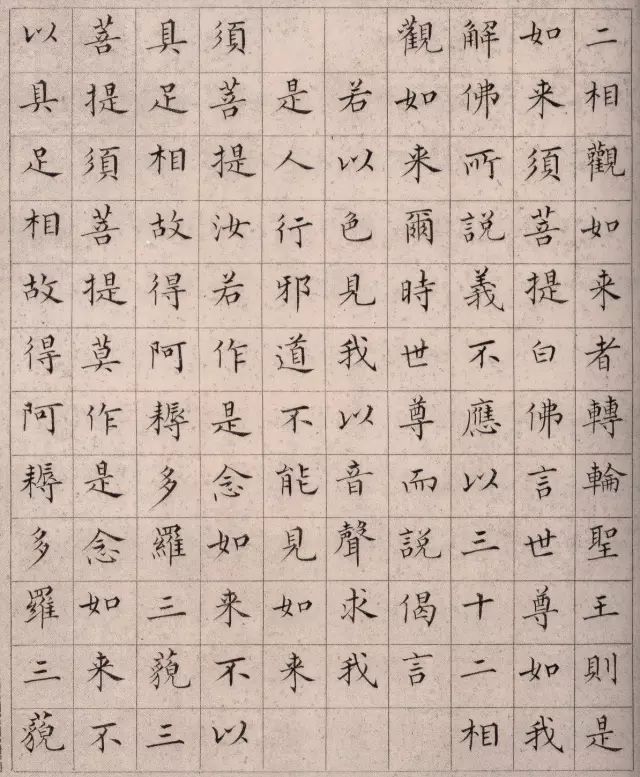 二相觀如来者轉輪聖王則是
如来須菩提白佛言世尊如我
解佛所說義不應以三十二相
觀如来爾時世尊而說偈言
若以色見我以音聲求我
是人行邪道不能見如来
須菩提汝若作是念如来不以
具足相故得阿耨多羅三藐三
菩提須菩提莫作是念如来不
以具足相故得阿耨多羅三藐